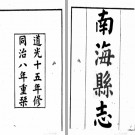 南海縣志
道光十五年修
同治八年重栞